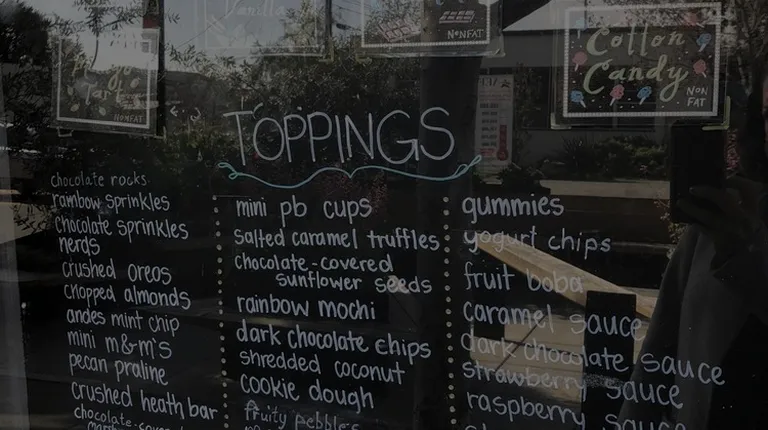 Vanilla
NONFAT
Cotton
Candy
NON
FAT
Tart
NONFAT
TOPPINGS
chocolate rocks
rainbow sprinkles
chocolate sprinkles
nerds
crushed oreos
chopped almonds
andes mint chip
mini m&m's
pecan praline
crushed heath bar
chocolate-covered
mini pb cups
salted caramel truffles
chocolate-covered
sunflower seeds
rainbow mochi
dark chocolate chips
shredded coconut
cookie dough
fruity pebbles
gummies
yogurt chips
fruit boba
caramel sauce
dark chocolate sauce
strawberry sauce
raspberry sauce